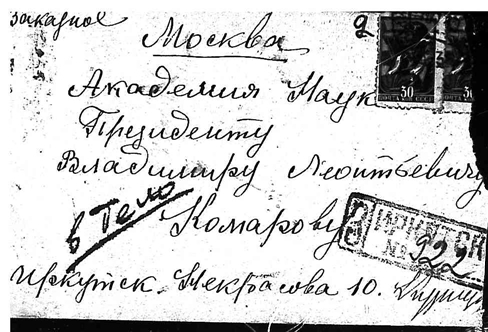 Заказное
Москва
Академия Наук
Президенту
Владимиру Леонтьевичу
Комарову
в Тело
ИРКУТСК
№ 922
Иркутск. Некрасова 10.
30 30
ПОЧТА СССР